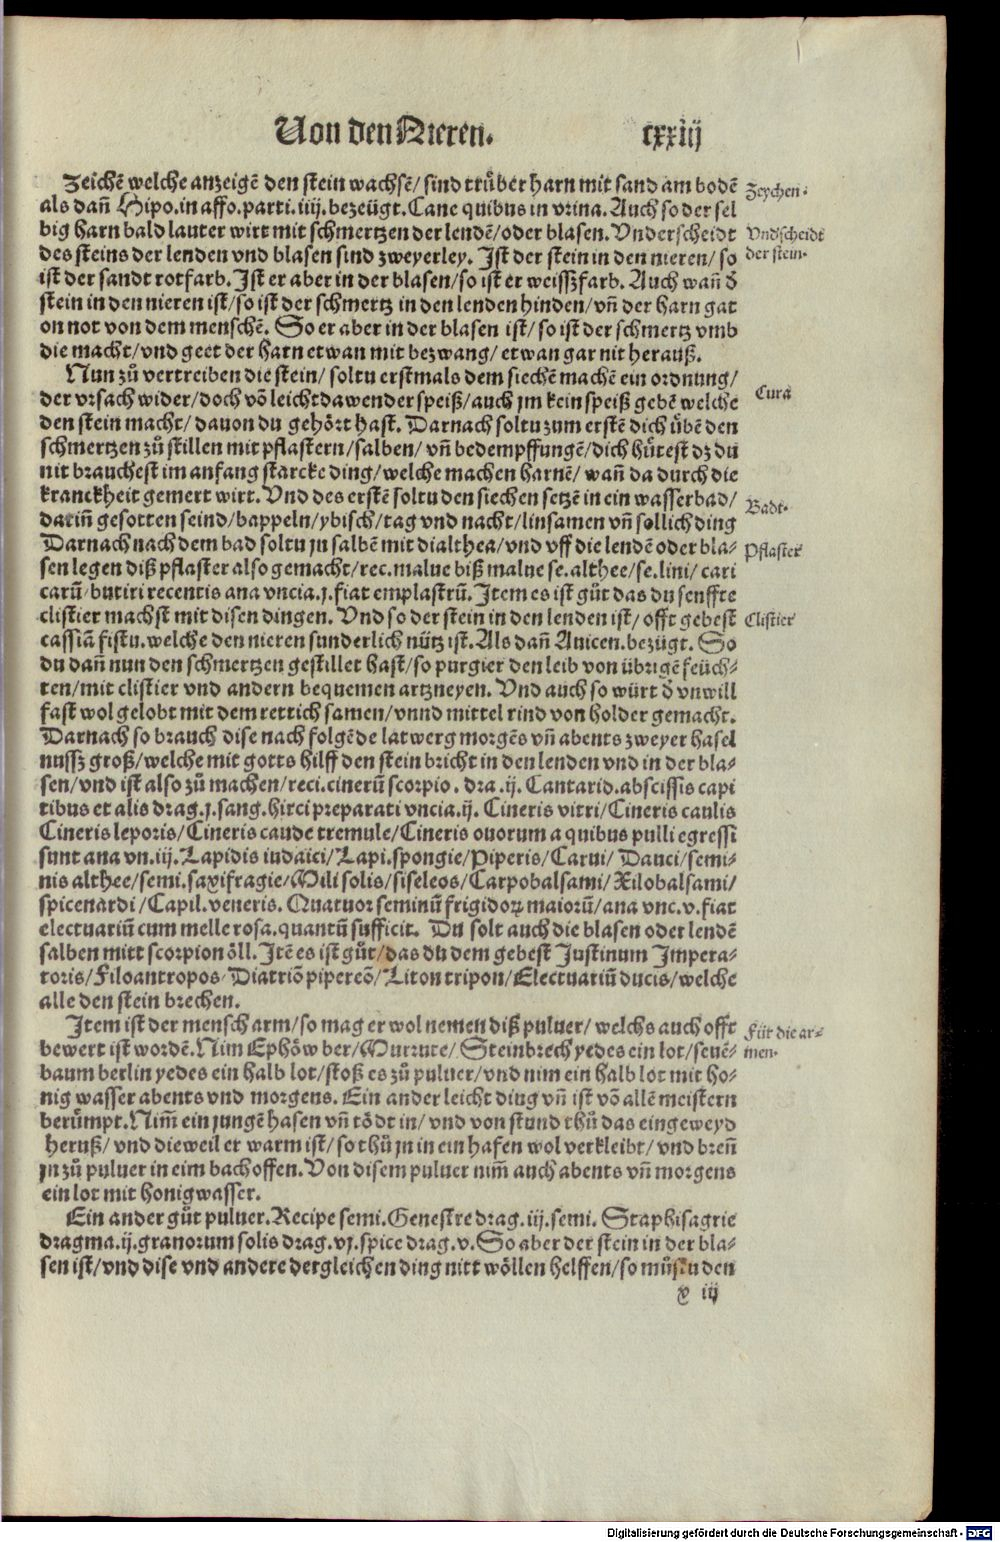 Von den Nieren.
cxxiij
Zeichē welche anzeigē den stein wachsē/ sind trüber harn mit sand am bodē
Zeychen.
als dañ Hipo.in affo.parti.iiij.bezeügt.Cane quibus in vrina. Auch so der sel
big harn bald lauter wirt mit schmertzen der lendē/oder blasen. Vnderscheidt
Vndscheidt
des steins der lenden vnd blasen sind zweyerley. Ist der stein in den nieren/ so
der stein.
ist der sandt rotfarb. Ist er aber in der blasen/so ist er weissz farb. Auch wañ d̄
stein in den nieren ist/so ist der schmertz in den lenden hinden/vñ der harn gat
on not von dem menschē. So er aber in der blasen ist/so ist der schmertz vmb
die macht/vnd geet der harn etwan mit bezwang/ etwan gar nit herauß.
Nun zů vertreiben die stein/ soltu erstmals dem siechē machē ein ordnung/
der vrsach wider/doch vō leicht dawender speiß/auch jm kein speiß gebē welche
Cura
den stein macht/ dauon du gehört hast. Darnach soltu zum erstē dich übē den
schmertzen zů stillen mit pflastern/salben/ vñ bedempffungē/dich hütest dz du
nit brauchest im anfang starcke ding/welche machen harnē/ wañ da durch die
kranckheit gemert wirt. Vnd des erstē soltu den siechen setzē in ein wasserbad/
Badt.
dariñ gesotten seind/bappeln/ybisch/tag vnd nacht/linsamen vñ sollich ding
Darnach nach dem bad soltu jn salbē mit dialthea/vnd vff die lendē oder bla-
Pflaster
sen legen diß pflaster also gemacht/rec.malue biß malue se.althee/se.lini/ cari
carū/butiri recentis ana vncia.j.fiat emplastrū. Item es ist gůt das du senffte
clistier machst mit disen dingen. Vnd so der stein in den lenden ist/ offt gebest
Clistier
cassiā fistu.welche den nieren sunderlich nütz ist. Als dañ Auicen.bezügt. So
du dañ nun den schmertzen gestillet hast/so purgier den leib von übrigē feüch-
ten/mit clistier vnd andern bequemen artzneyen. Vnd auch so würt d̄ vnwill
fast wol gelobt mit dem rettich samen/vnnd mittel rind von holder gemacht.
Darnach so brauch dise nach folgēde latwerg morgēs vñ abents zweyer hasel
nussz groß/welche mit gotts hilff den stein bricht in den lenden vnd in der bla-
sen/vnd ist also zů machen/reci.cinerū scorpio. dra.ij. Cantarid.abscissis capi
tibus et alis drag.j.sang.hirci preparati vncia.ij. Cineris vitri/Cineris caulis
Cineris leporis/Cineris caude tremule/Cineris ouorum a quibus pulli egressi
sunt ana vn.iij.Lapidis iudaici/Lapi.spongie/Piperis/Carui/ Dauci/semi-
nis althee/semi.saxifragie/Mili solis/siseleos/Carpobalsami/Xilobalsami/
spicenardi/Capil.veneris. Quatuor seminū frigidoꝝ maiorū/ana vnc.v.fiat
electuariū cum melle rosa.quantū sufficit. Du solt auch die blasen oder lendē
salben mitt scorpion öll. Itē es ist gůt/das du dem gebest Justinum Impera-
toris/Filoantropos/Diatriō pipereō/Liton tripon/Electuariū ducis/welche
alle den stein brechen.
Item ist der mensch arm/so mag er wol nemen diß puluer/ welchs auch offt
Für die ar-
bewert ist wordē. Nim Ephöw ber/Murrute/ Steinbrech yedes ein lot/seuē-
men.
baum berlin yedes ein halb lot/stoß es zů puluer/vnd nim ein halb lot mit ho-
nig wasser abents vnd morgens. Ein ander leicht ding vñ ist vō allē meistern
berümpt.Nim̄ ein jungē hasen vñ tödt in/ vnd von stund thů das eingeweyd
heruß/ vnd dieweil er warm ist/so thů jn in ein hafen wol verkleibt/ vnd breñ
jn zů puluer in eim bachoffen. Von disem puluer nim̄ auch abents vñ morgens
ein lot mit honigwasser.
Ein ander gůt puluer. Recipe semi.Genestre drag.iij.semi. Staphisagrie
dragma.ij.granorum solis drag.vj.spice drag.v. So aber der stein in der bla-
sen ist/vnd dise vnd andere dergleichen ding nitt wöllen helffen/so můstu den
x iij
Digitalisierung gefördert durch die Deutsche Forschungsgemeinschaft - DFG